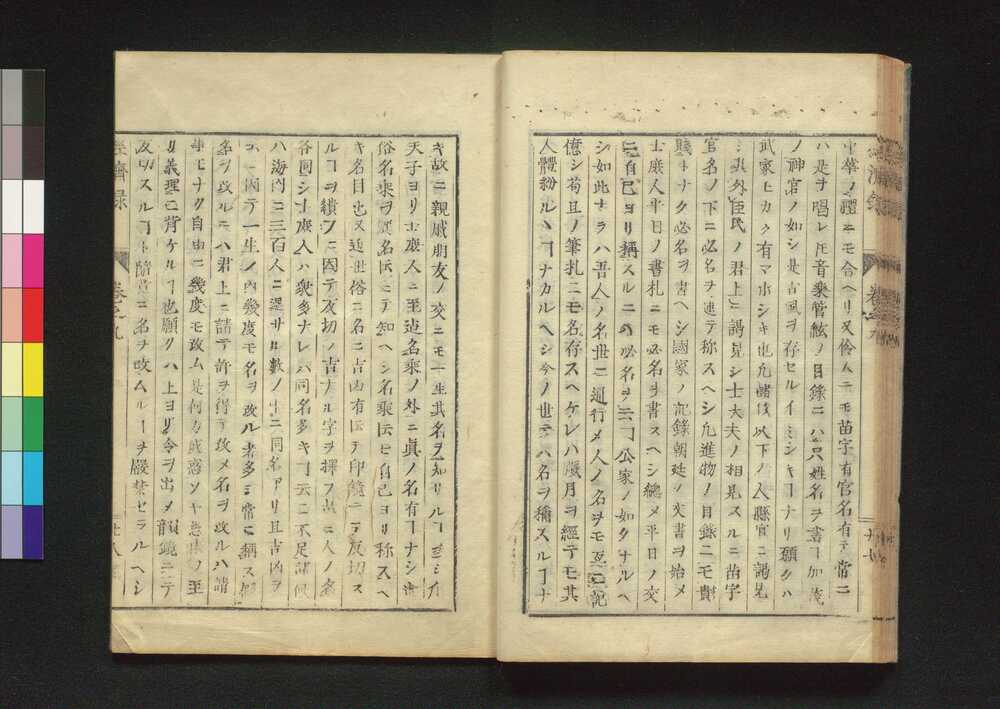 中華ノ禮ニモ合ヘリ又伶人ニモ苗字有官名有テ常ニ
ハ是ヲ唱レ𪜈音樂管絃ノ目錄ニハ只姓名ヲ書ヿ加茂
ノ神官ノ如シ是古風ヲ存セルイミシキヿナリ願クハ
武家ヒカク有マホシキ也凡諸侯以下ノ人縣官ニ謁見
シ其外臣民ノ君上ニ謁見シ士大夫ノ相見スルニ苗字
官名ノ下ニ必名ヲ連テ称スヘシ凡進物ノ目錄ニモ貴
賤トナク必名ヲ書ヘシ國家ノ記錄朝廷ノ文書ヲ始メ
士庶人平日ノ書札ニモ必名ヲ書スヘシ總〆平日ノ交
ニ自己ヨリ稱スルニ必名ヲ云ヿ公家ノ如クナルヘ
シ如此ナラハ吾人ノ名世ニ通行〆人ノ名ヲモ互ニ記
億シ苟且ノ筆札ニモ名存スヘケレハ歲月ヲ經テモ其
人體粉ルヽヿナカルヘシ今ノ世ニテハ名ヲ稱スルヿナ
キ故ニ親戚朋友ノ交ニモ一生其名ヲ知サルヿ
天子ヨリ士庶人ニ至迠名乘ノ外ニ眞ノ名有ヿナシ
俗名乘ヲ
キ名目也又近世俗ニ名ニ吉凶有𪜈テ印鏡ニテ反切ス
ルヿヲ
各國シ士庶人ハ衆多ナレハ同名多キヿ云ニ不足諸侯
ハ海内ニ三百人ニ過サル數ノ中ニ同名アリ且吉凶ヲ
因テ一生ノ內幾度モ名ヲ改ル者多シ常ニ稱ス
名ヲ改ルニハ君上ニ請テ許ヲ得テ改メ名ヲ改ルハ請
モナク自由ニ幾度モ改ム是何ノ惑ソヤ愚昧ノ至
リ義理ニ背ケルヿ也願クハ上ヨリ令ヲ出〆韻鏡ニテ
反切スルヿト隨意ニ名ヲ改ムルヿヲ嚴禁セラルヘシ
經濟錄
卷之九
廿八